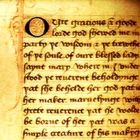 Oure gracious & gode
lorde god shewed me in
party þe wisdom & þe trewthe
of þe soule of oure blessed
lady saynt mary where in
stode þe reuerent beholdynge
þat she behelde her god
her maker maruelynge with
grete reuerent þat he wolde
be borne of her þat was a
simple creature of his makyng